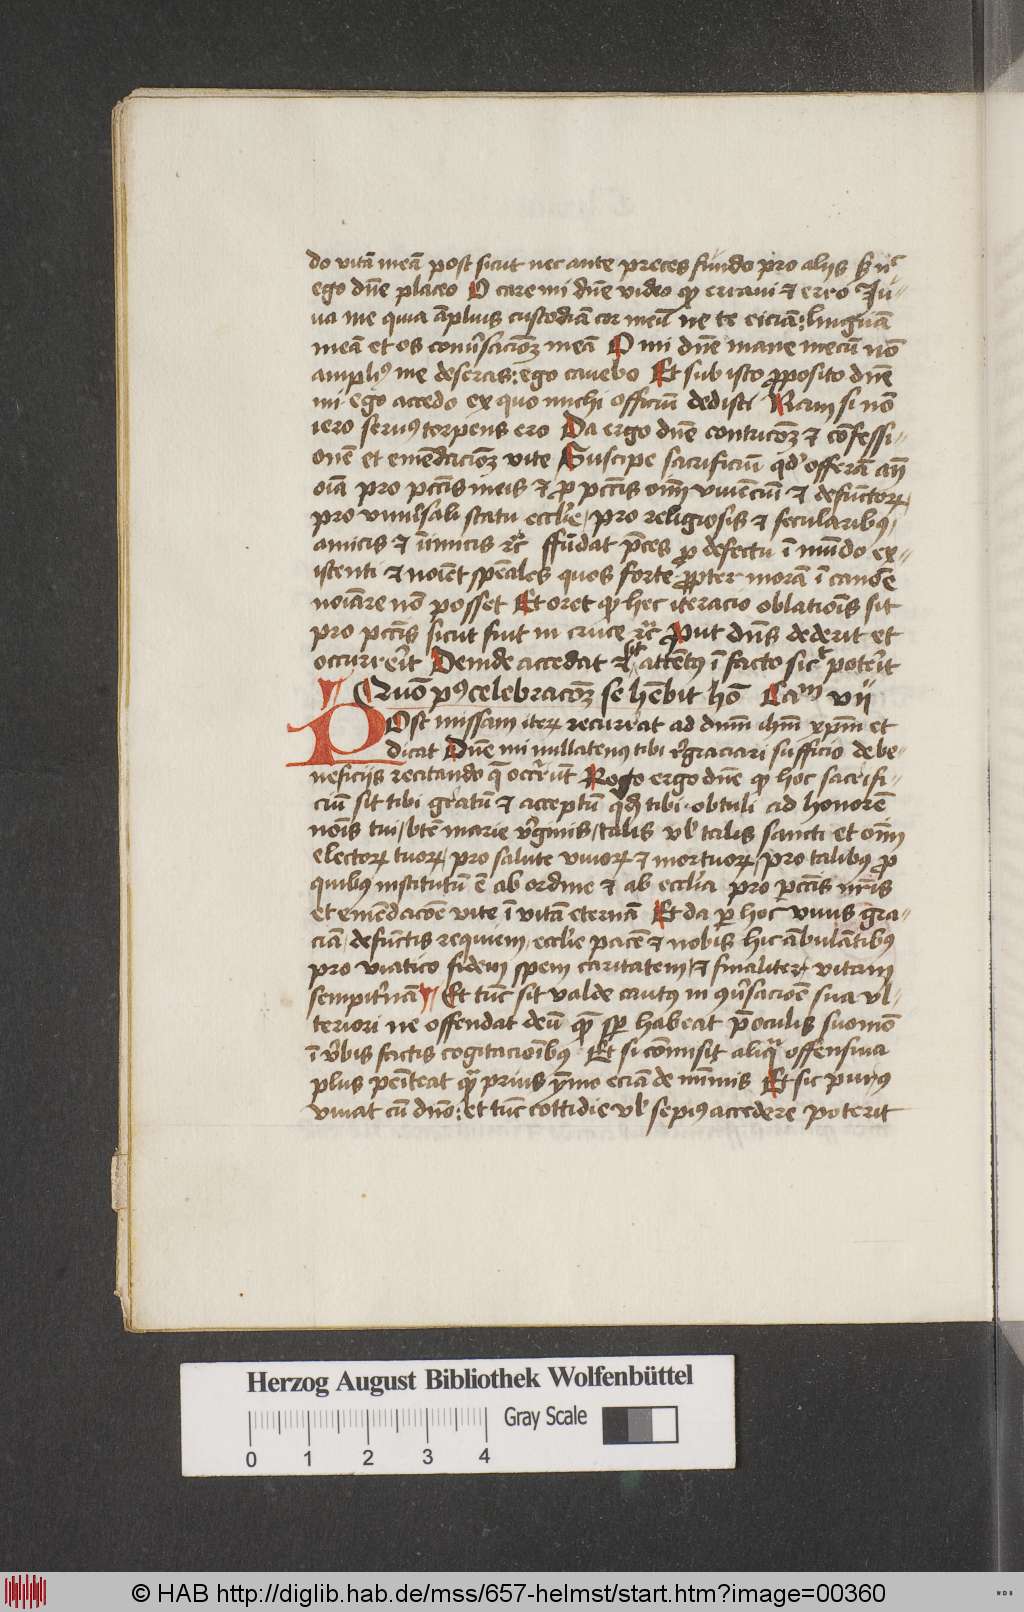 do vitā meā post sicut nec ante preces fundo pro aliis
ego dn̄e placeo O care mi dn̄e video qꝫ erravi et erro Ju-
va me quia āplius custodiā cor meū ne te eiciā: linguā
meā et os conu̾sacionꝫ meā O mi dn̄e mane mecū nō
ampliꝰ me deseras: ego cavebo Et sub isto ꝓposito dn̄e
mi ego accedo ex quo michi officiū dedisti Nam si nō
iero servꝰ torpens ero Da ergo dn̄e contricōꝫ et cōfessi-
onē et emēdacionꝫ vite Suscipe sacrificiū qd̾ offerā
oīa pro pctīs meis et ꝓ pctīs om̄ viventiū et defūctorꝝ
pro vniu̾sali statu eccl̄ie, pro religiosis et secularibꝰ,
amicis et inimicis ꝛc̄ ffūdat p̄ces ꝓ defectu ī mūdo ex-
istenti et noīet spēales quos forte ꝓpter morā ī canōe
noīare nō posset Et oret qꝫ hec iteracio oblationis sit
pro pctīs sicut fuit in cruce ꝛc̄ Prut dn̄s dederit et
occurrerit Deinde accedat et sit attētꝰ ī facto sic̄ poterit
Quō pꝰ celebracōꝫ se hēbit hō Cam vii
Post missam iterꝝ recurrat ad dnm̄ ihm̄ xpm̄ et
dicat Dn̄e mi nullatenꝰ tibi r̾graciari sufficio de be-
neficijs recitando q̄ occrrūt Rogo ergo dn̄e qꝫ hoc sacrifi-
ciū sit tibi gratū et acceptū qd̾ tibi obtuli ad honorē
noīs tui, btē marie v̾ginis, talis vl̾ talis sancti et om̄
electorꝝ tuorꝝ, pro salute vivorꝝ et mortuorꝝ, pro talibꝰ ꝓ
quibꝰ institutū ē ab ordine et ab eccl̄ia pro pctīs nr̄is
et emēdacōe vite ī vitā eternā Et da per hoc vivis gra-
ciā, defūctis requiem, eccl̄ie pacē et nobis hic ābulātibꝰ
pro viatico fidem spem caritatem, et finaliter vitam
sempit̾nā Et tūc sit valde cautꝰ in 9u̾sacioē sua vl-
teriori ne offendat deū quē semper habeat p̄ oculis suomō
ī v̾bis factis cogitacioībꝰ Et si cōmisit aliqua offensiva
plus penīteat quā prius ymo eciā de mīmis Et sic purꝰ
vivat cū dno: et tūc cottidie vl̾ sepiꝰ accedere poterit
Herzog August Bibliothek Wolfenbüttel
Gray Scale
0 1 2 3 4
© HAB http://diglib.hab.de/mss/657-helmst/start.htm?image=00360